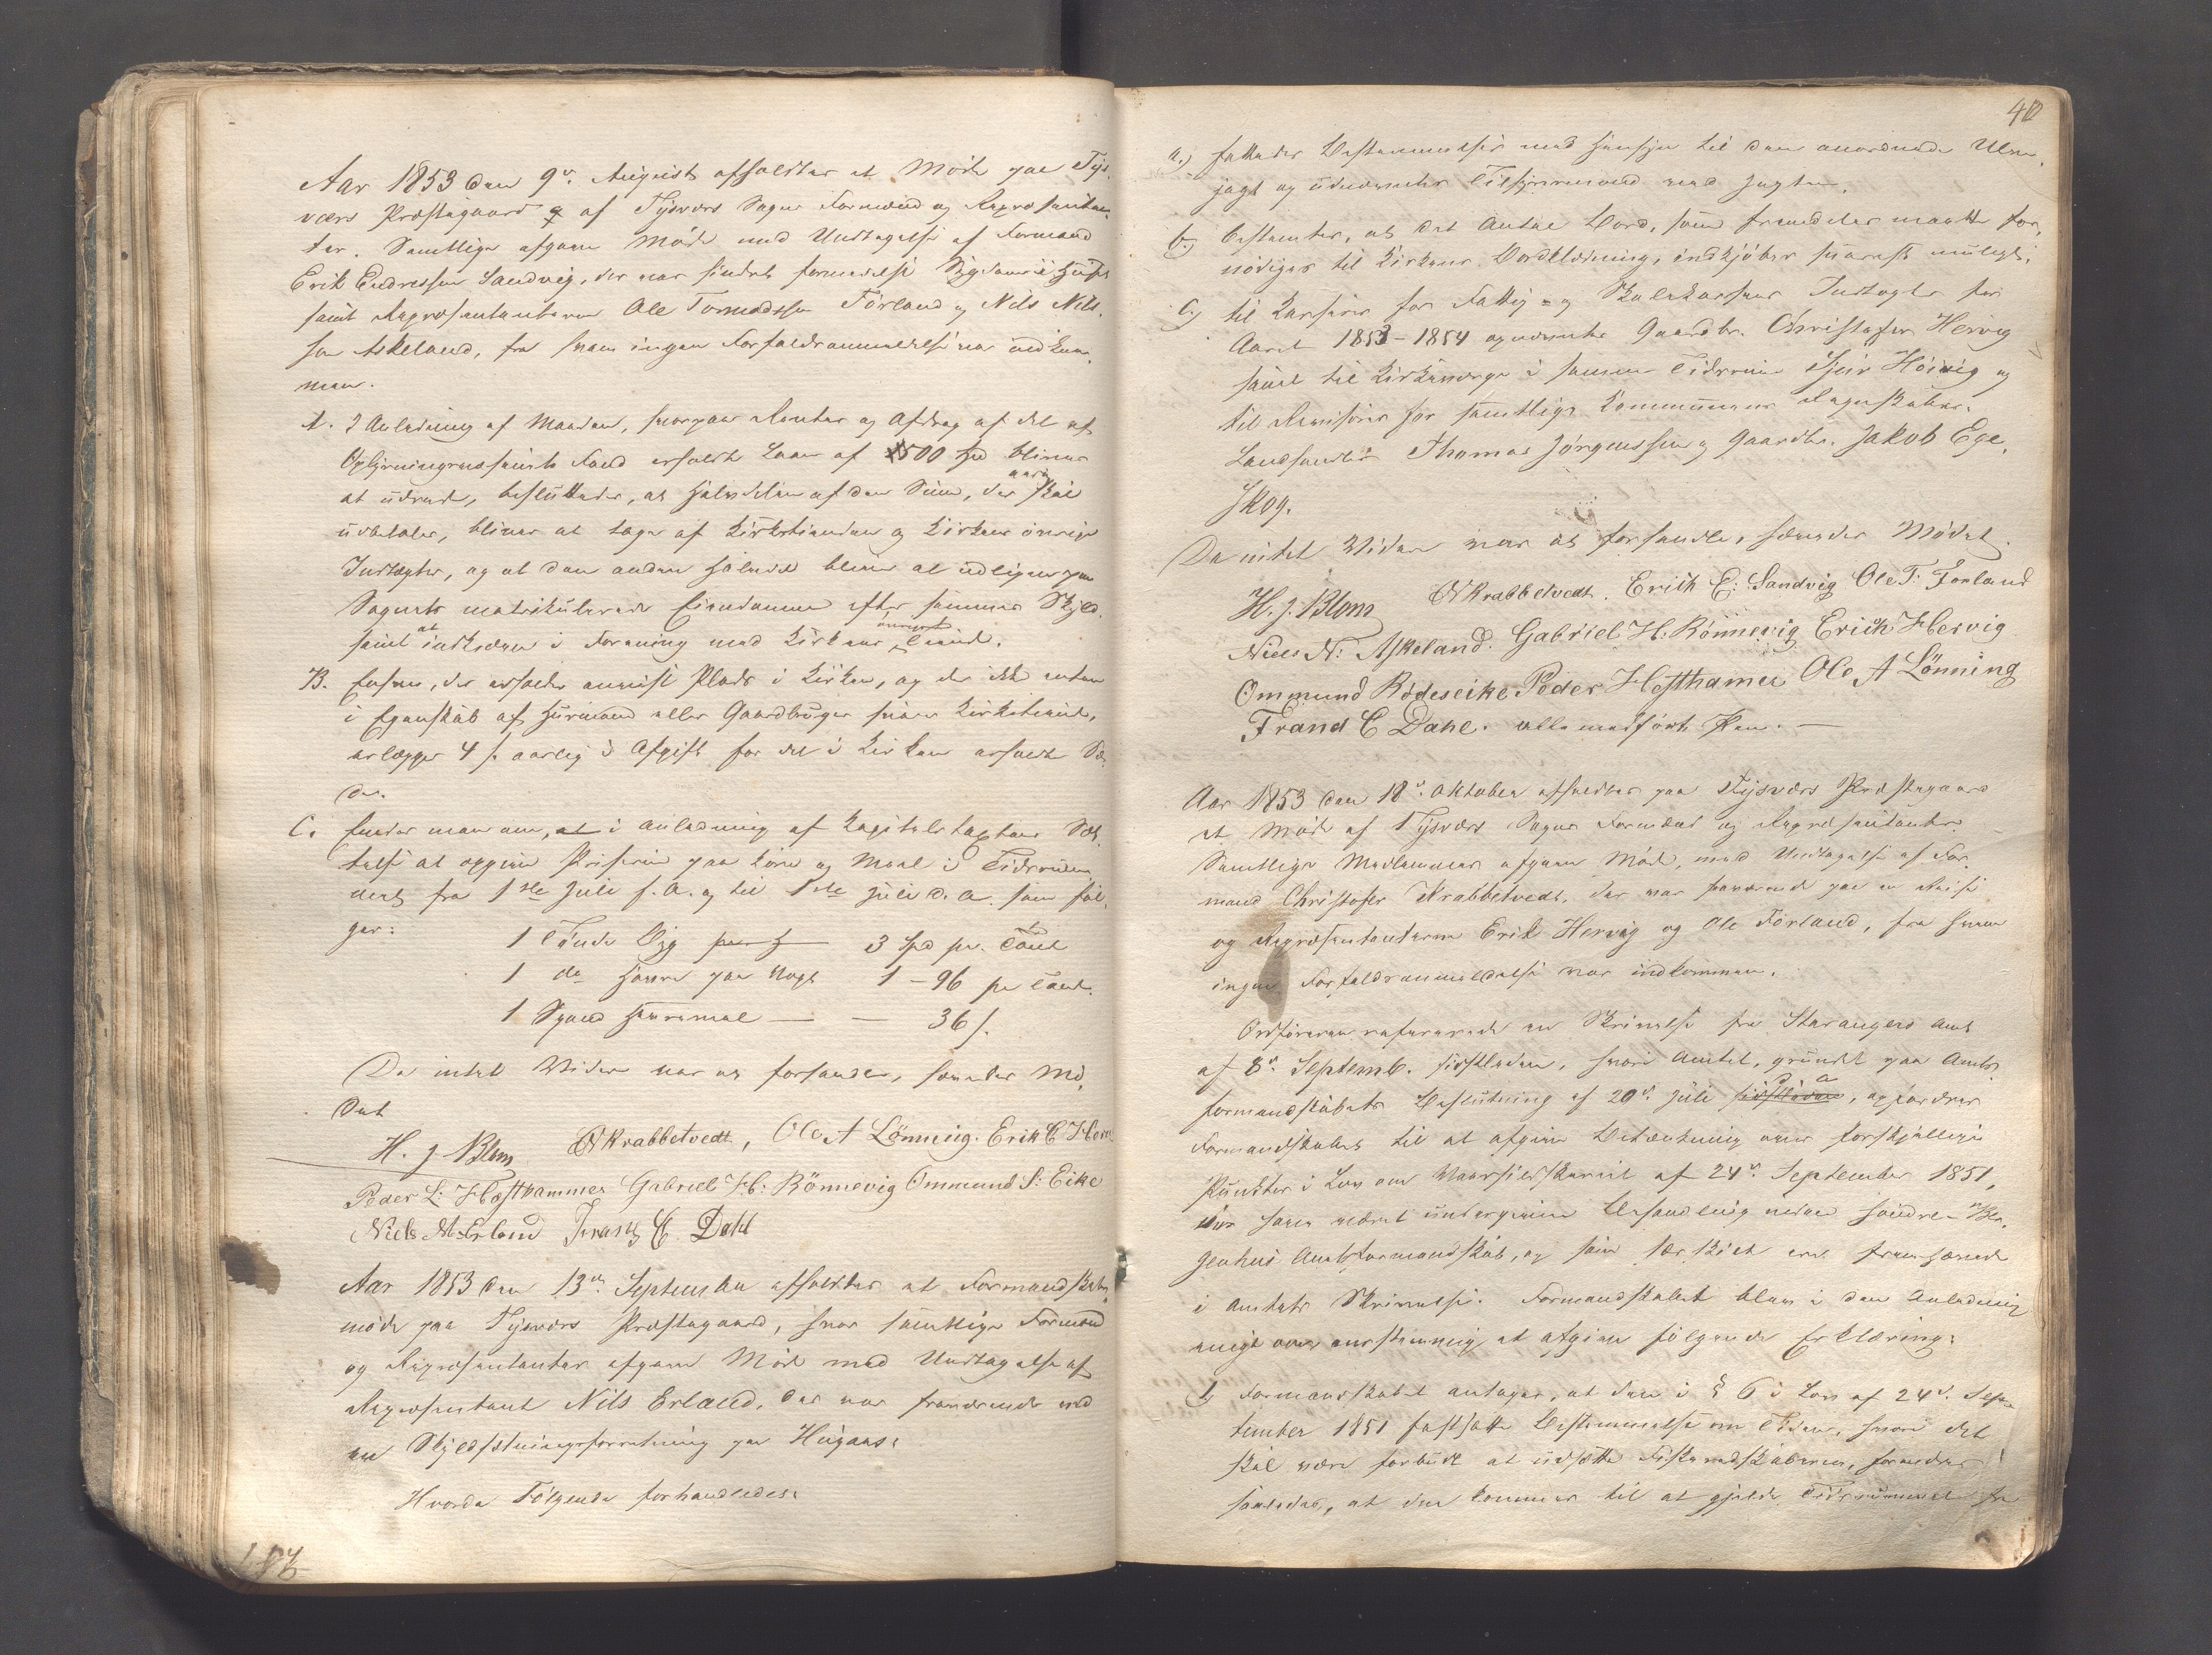 Aar 1853 den 9de August afholdtes et Møde paa Tys-
vær Præstegaard af Tysvær Sogns Formænd og Repræsentan-
ter. Samtlige afgave Møde med Undtagelse af Formand
Erik Endressen Sandvig, der var hindret formedelst Sygdom i Huset
samt Repræsentanterne Ole Tormodssen Förland og Nils Nils-
sen Askeland, fra hvem ingen Forfaldsanmeldelse var indkom-
men.
A. I Anledning af Maaden, hvorpaa Renter og Afdrag af det af
Oplysningsvæsenets Fond erholdte Laan af 500 Spd bliver
at udrede, besluttedes, at Halvdelen af den Sum, der aarlig skal
udbetales, bliver at tage af Kirketienden og Kirkens øvrige
Indtægter, og at den anden Halvdel bliver at udligne paa
Sognets matrikulerede Eiendomme efter sammes Skyld
samt at indkræves i Forening med Kirkens Tiende.
B. Enhver, der erholder anviist Plads i Kirken, og der ikke enten
i Egenskab af Huusmand eller Gaardbruger svarer Kirketiende,
erlægger 4 s. aarlig i Afgift for det i Kirken erholdte Sæ-
de.
C. Enedes man om, at i Anledning af Kapitelstaxtens Sæt-
telse at opgive Priserne paa Korn og Meel i Tidsrum-
met fra 1ste Juli f. A. og til 1ste Juli d. A. som føl-
ger:
1 Tönde Byg 3 Spd pr. Tönde
1 do Havre paa Vægt 1 - 96 pr Tönde
1 Spand Havremel — — 36 s.
Da intet Videre var at forhandle, hævedes Mö-
det
H. J. Blom CKrabbetvedt, Ole A Lönning. Erik C Herv
Peder L: Hesthammer Gabriel H: Rönnevig Ommund S: Eike
Niels N. Erland Frans C. Dahl
Aar 1853 den 13de September afholdtes et Formandskabs-
møde paa Tysvær Præstegaard, hvor samtlige Formænd
og Repræsentanter afgave Møde med Undtagelse af
Repræsentant Nils Erland, der var fraværende ved
en Skyldsætningsforretning paa Hugaas.
Hvorda Fölgende forhandledes:
40
a.) fattedes Bestemmelser med Hensyn til den anordnede Ulve-
jagt og udnævntes Tilsynsmænd ved Jagten.
b.) bestemtes, at det Antal Bord, som fremdeles maatte for-
nödiges til Kirkens Bordklædning, indkjöbes snarest muligt;
c.) til Kasserer for Fattig- og Skolekassens Indtægter for
Aaret 1853-1854 opnævntes Gaardbr. Christofer Hervig
samt til Kirkeværge i samme Tidsrum Sjur Höivig og
til Revisorer for samtlige Kommunens Regnskaber,
Landhandler Thomas Jörgenssen og Gaardbr. Jakob Ege-
skog.
Da intet Videre var at forhandle, hævedes Mödet.
H. J. Blom CKrabbetvedt. Erich E: Sandvig Ole T: Forland
Niels N: Askeland. Gabriel H. Rönnevig Erich Hervig
Ommund Rödeseike Peder Hesthamer Ole A Lönning
Frans C Dahl. alle med fört Pen. —
Aar 1853 den 18de Oktober afholdtes paa Tysvær Præstegaard
et Möde af Tysvær Sogns Formænd og Repræsentanter.
Samtlige Medlemmer afgave Möde, med Undtagelse af For-
mand Christofer Krabbetvedt, der var fraværende paa en Reise
og Repræsentanterne Erik Hervig og Ole Förland, fra hvem
ingen Forfaldsanmeldelse var indkommen.
Ordföreren refererede en Skrivelse fra Stavangers Amt
af 8de Septemb. sidstleden, hvori Amtet, grundet paa Amts-
formandskabets Beslutning af 20de Juli d. A., opfordrer
Formandskabet til at afgive Betænkning over forskjellige
Punkter i Lov om Vaarsildfiskeriet af 24de September 1851,
der have været undergivne Behandling ved söndre Ber-
genhus Amtsformandskab, og som særskilt ere fremhævede
i Amtets Skrivelse. Formandskabet blev i den Anledning
enigt om at afgive fölgende Erklæring:
1. Formandskabet antager, at den i § 6 i Lov af 24de Sep-
tember 1851 fastsatte Bestemmelse om Tiden, hvori det
skal være forbudt at udsætte Fiskeredskaberne, forandres
saaledes, at den kommer til at gjelde Tidsrummet fra